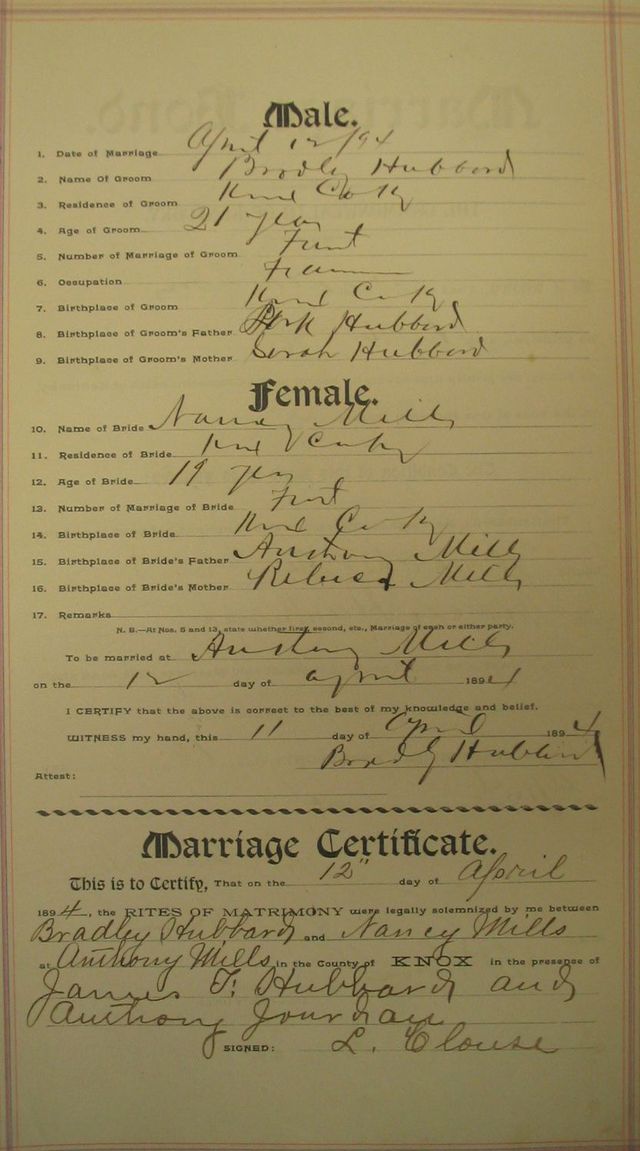 Male.
1. Date of Marriage April 12/94
2. Name Of Groom Bradley Hubbard
3. Residence of Groom Knox Co Ky
4. Age of Groom 21 years
5. Number of Marriage of Groom First
6. Occupation Farmer
7. Birthplace of Groom Knox Co Ky
8. Birthplace of Groom's Father Hubbard
9. Birthplace of Groom's Mother Sarah Hubbard
Female.
10. Name of Bride Nancy Mills
11. Residence of Bride Knox Co Ky
12. Age of Bride 19 years
13. Number of Marriage of Bride First
14. Birthplace of Bride Knox Co Ky
15. Birthplace of Bride's Father Anthony Mills
16. Birthplace of Bride's Mother Mills
17. Remarks
N. B.—At Nos. 5 and 13, state whether first, second, etc., Marriage of each or either party.
To be married at Anthony Mills
on the 12 day of april 1894
I CERTIFY that the above is correct to the best of my knowledge and belief.
WITNESS my hand, this 11 day of April 1894
Bradly Hubbard
Attest:
Marriage Certificate.
This is to Certify, That on the 12" day of April
1894, the RITES OF MATRIMONY were legally solemnized by me between
Bradley Hubbard and Nancy Mills
at Anthony Mills in the County of KNOX in the presence of
James F. Hubbard and
Anthony Jourdan
SIGNED: L. Clouse